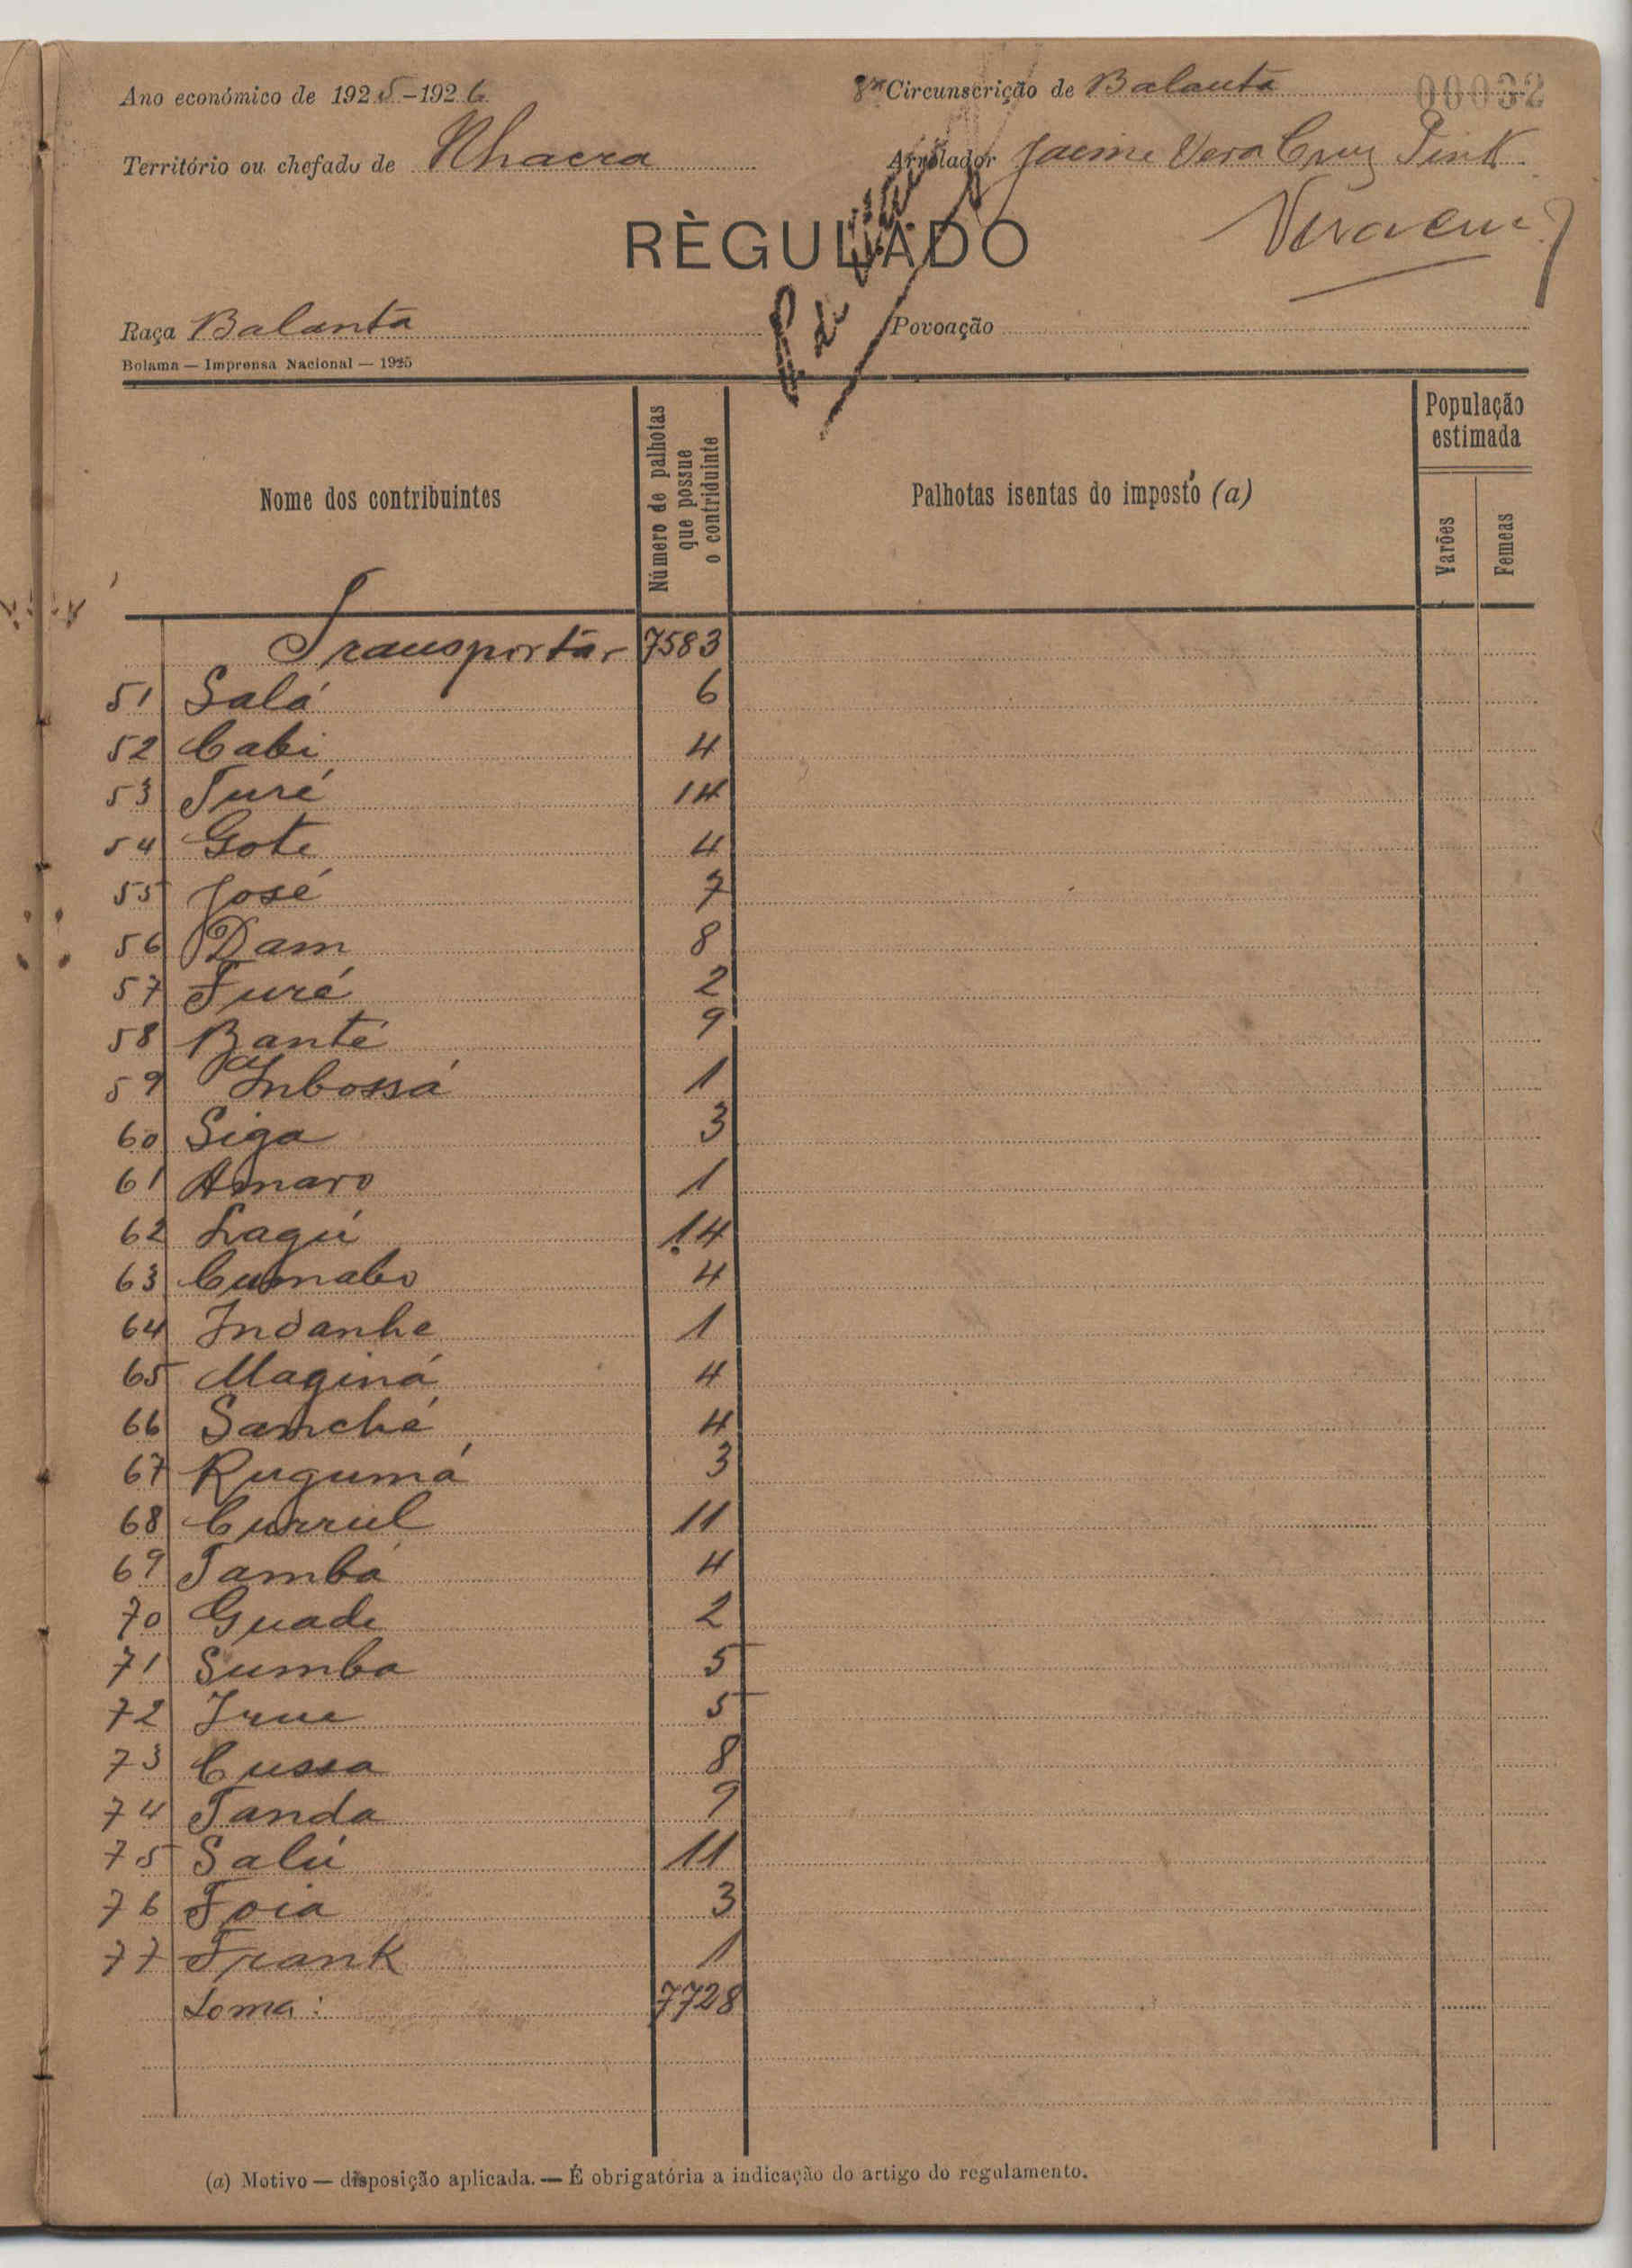 Ano económico de 1925-1926
Circunscrição de Balanta
00032
Território ou chefado de Nhacra
Arrolador Jaime Vera Cruz Pink
RÈGULADO
Raça Balanta
Povoação
Bolama — Imprensa Nacional — 1925
Nome dos contribuintes
Número de palhotas que possue o contriduinte
Palhotas isentas do imposto (a)
População estimada
Varões
Femeas
Transportar 7583
51 Salá 6
52 Cabi 4
53 Turé 14
54 Gote 4
55 José 7
56 Dam 8
57 Furé 2
58 Banté 9
59 Inbossá 1
60 Siga 3
61 Amaro 1
62 Lagú 14
63 Cumabo 4
64 Indanhe 1
65 Maginá 4
66 Sanché 4
67 Rugumá 3
68 Currul 11
69 Tambá 4
70 Guade 2
71 Sumba 5
72 Irue 5
73 Cussa 8
74 Tanda 9
75 Salú 11
76 Foia 3
77 Frank 1
Soma: 7728
(a) Motivo — disposição aplicada. — É obrigatória a indicação do artigo do regulamento.